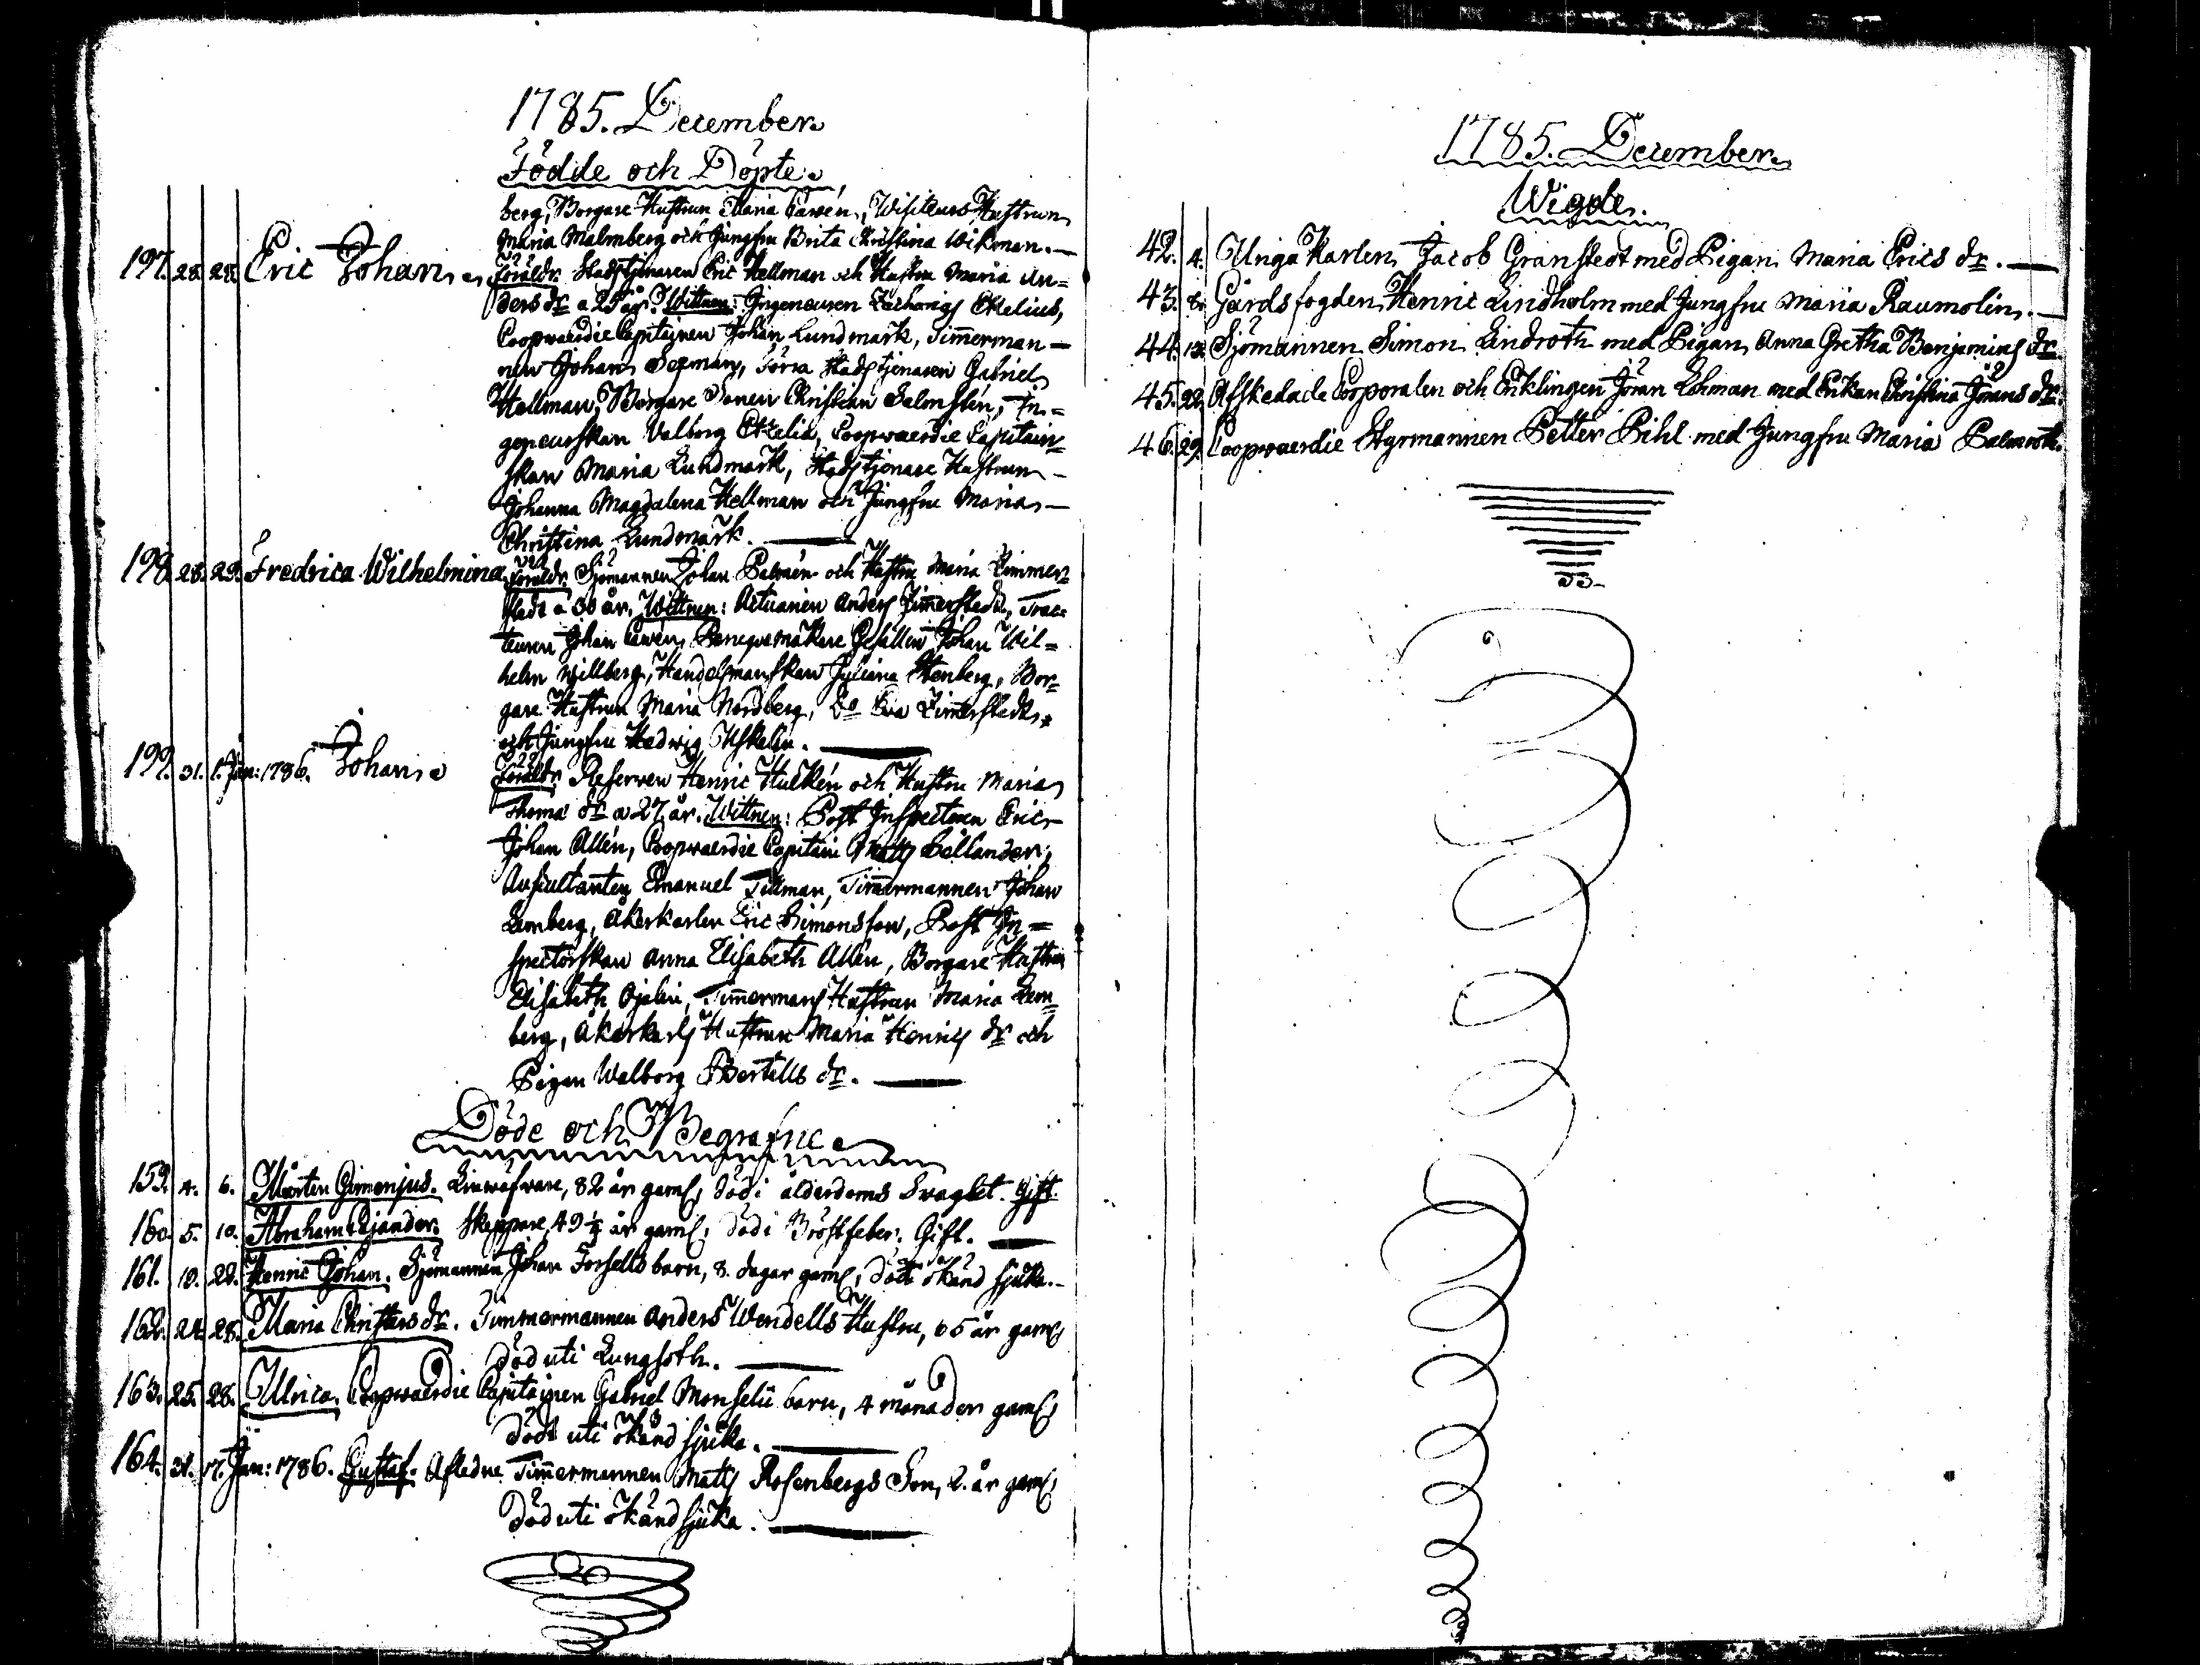 1785. December
Födde och Döpte.
berg, Borgare Hustrun Maria Cavén, Visiteurs Hustrun
Maria Malmberg och Jungfru Brita Christina Wikman.
197. 28. 28. Eric Johan. Föräldr. Stadstjenaren Eric Hellman och Hustru Maria An=
ders dr a 25 år. Wittnen: Ingenieuren Zacharias
Coopvaerdie Capitainen Johan Lundmark, Timmerman
nen Johan Segman, Förra Stadstjenaren Gabriel
Hellman, Borgare Sonen Christian Salonstén, In=
genieurskan Valborg Coopvaerdie Capitain
skan Maria Lundmark, Stadstjenare Hustrun
Johanna Magdalena Hellman och Jungfru Maria
Christina Lundmark.
198. 28. 29. Fredrica Wilhelmina Föräldr. Sjömannen Johan Palmén och Hustru Maria Zimmer
stedt a 30 år. Wittnen: Actuarien Anders Zimmerstedt, Trac
teuren Johan Cavén, Gesällen Johan Wil=
helm Willberg, Handelsmanskan Juliana Stenberg, Bor=
gare Hustrun Maria Nordberg, Do Eva Zimmerstedt,
och Jungfru Hedwig
199. 31. 1. Jan: 1786. Johan. Föräldr. Reserven Henric Hulkén och Hustru Maria
Thomæ dr a 27 år. Wittnen: Post Inspectoren Eric
Johan Allén, Coopvaerdie Capitain Matts Sellander,
Auscultanten Emanuel Tillman, Timmermannen Johan
Lemberg, Åkerkarlen Eric Simonsson, Post In=
spectorskan Anna Elisabeth Allén, Borgare Hustrun
Elisabeth Timmermans Hustrun Maria Lem=
berg, Åkerkarls Hustrun Maria Henrics dr och
Pigan Walborg Bertills dr.
Döde och Begrafne
159. 4. 6. Mårten Linwäfvare, 82 år gaml, död i ålderdoms Svaghet. Gift.
160. 5. 10. Abraham Skeppare, 49 ½ år gaml, död i Bröstfeber. Gift.
161. 10. 22. Henric Johan. Sjömannen Johan Forsells barn, 8. dagar gaml, död i okänd sjuka.
162. 24. 28. Maria Christers dr. Timmermannen Anders Wendells Hustru, 65 år gaml
död uti Lungsoth.
163. 25. 28. Ulrica, Coopvaerdie Capitainen Gabriel Monselii barn, 4 månader gaml
död uti okänd sjuka.
164. 31. 17. Jan: 1786. Gustaf. Afledne Timmermannen Matts Rosenbergs Son, 2. år gaml,
död uti okänd sjuka.
1785. December
Wigde.
42. 4. Unga Karlen Jacob Granstedt med Pigan Maria Erics dr.
43. 6. Gårdsfogden Henric Lindholm med Jungfru Maria Raumolin.
44. 13. Sjömannen Simon Lindroth med Pigan Anna Gretha Benjamins dr
45. 22. Afskedade Corporalen och Enklingen Jöran Lohman med Enkan Christina Jörans dr.
46. 29. Coopvaerdie Styrmannen Petter Pihl med Jungfru Maria Palmroth.